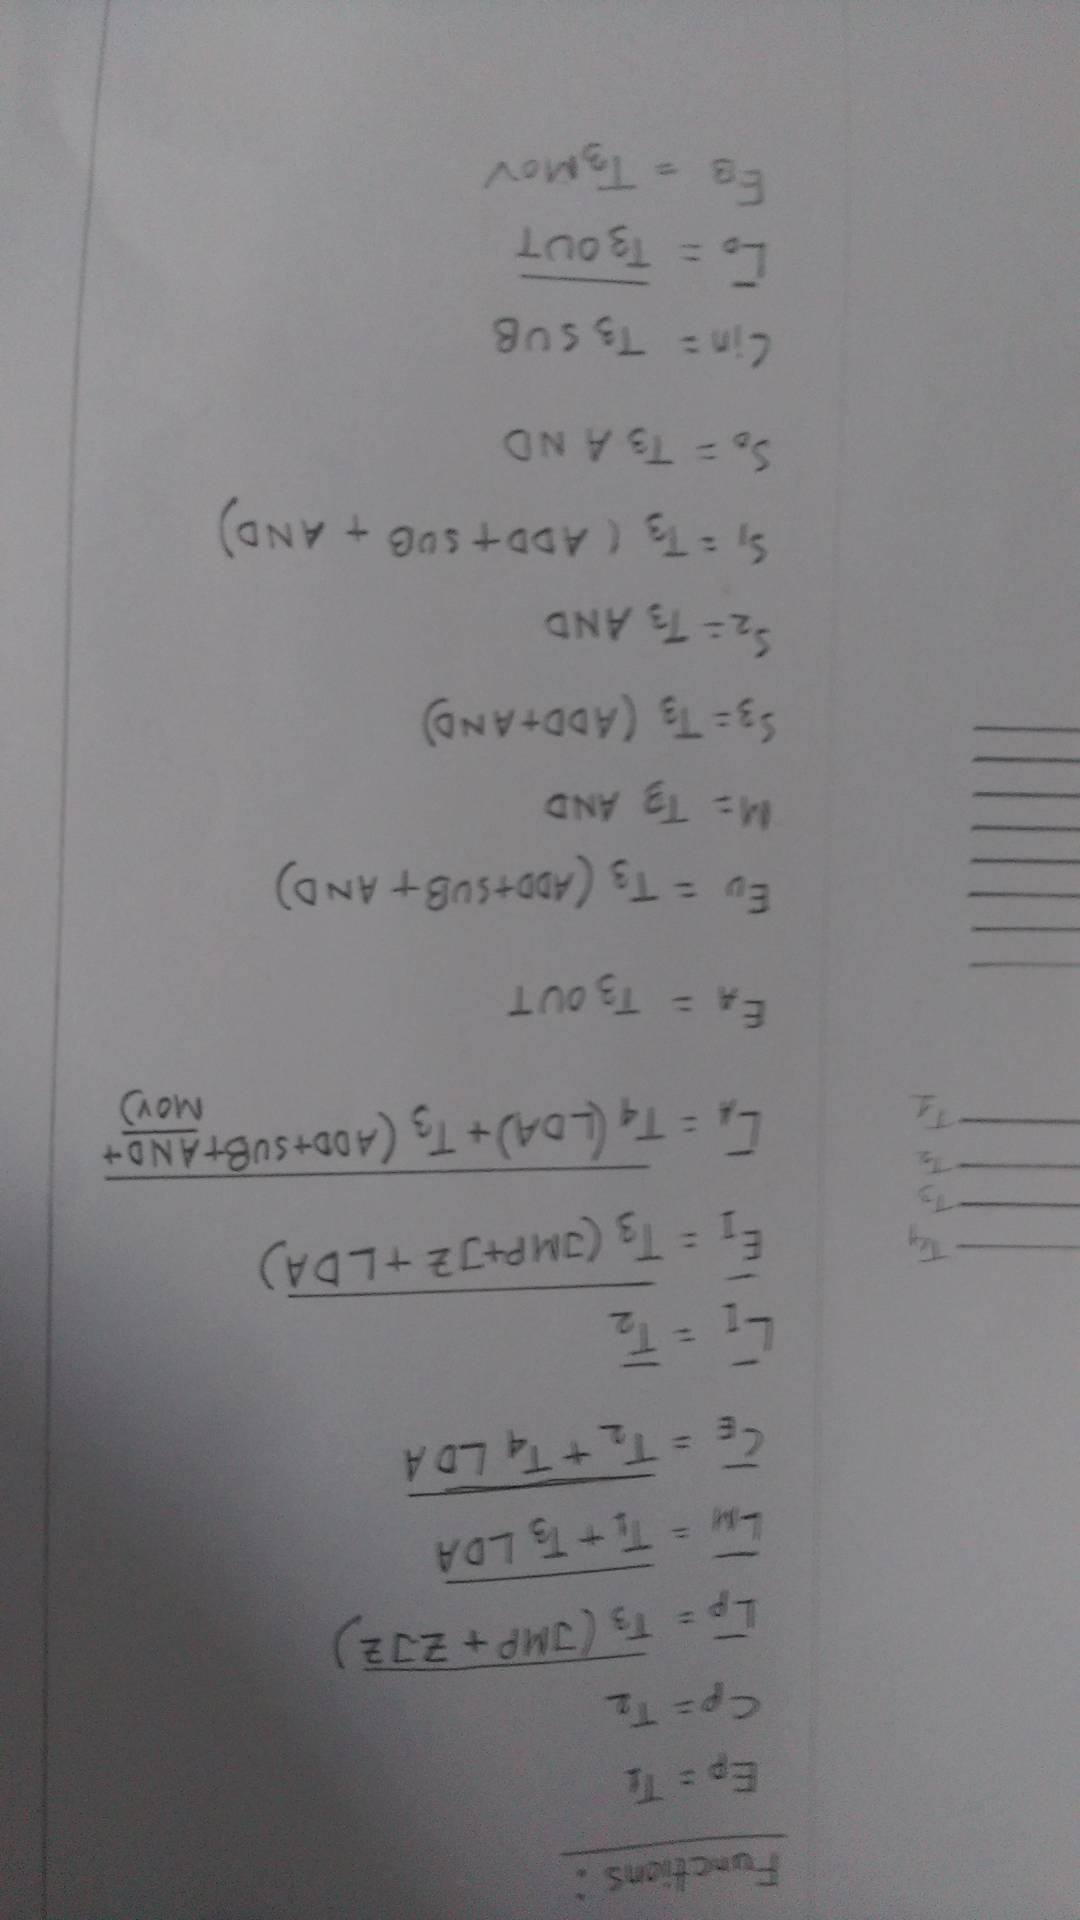 Functions:
E_P = T_1
C_P = T_2
L̅_P = \overline{T_3 (JMP + ZJZ)}
L̅_M = \overline{T_1 + T_3 LDA}
C̅_E = \overline{T_2 + T_4 LDA}
L̅_I = \overline{T_2}
E̅_I = \overline{T_3 (JMP+JZ+LDA)}
T_4
T_3
T_2
T_1
L̅_A = \overline{T_4 (LDA) + T_3 (ADD+SUB+AND+
MOV)}
E_A = T_3 OUT
E_U = T_3 (ADD+SUB+AND)
M = T_3 AND
S_3 = T_3 (ADD+AND)
S_2 = T_3 AND
S_1 = T_3 (ADD+SUB+AND)
S_0 = T_3 AND
Cin = T_3 SUB
L̅_O = \overline{T_3 OUT}
E_B = T_3 MOV